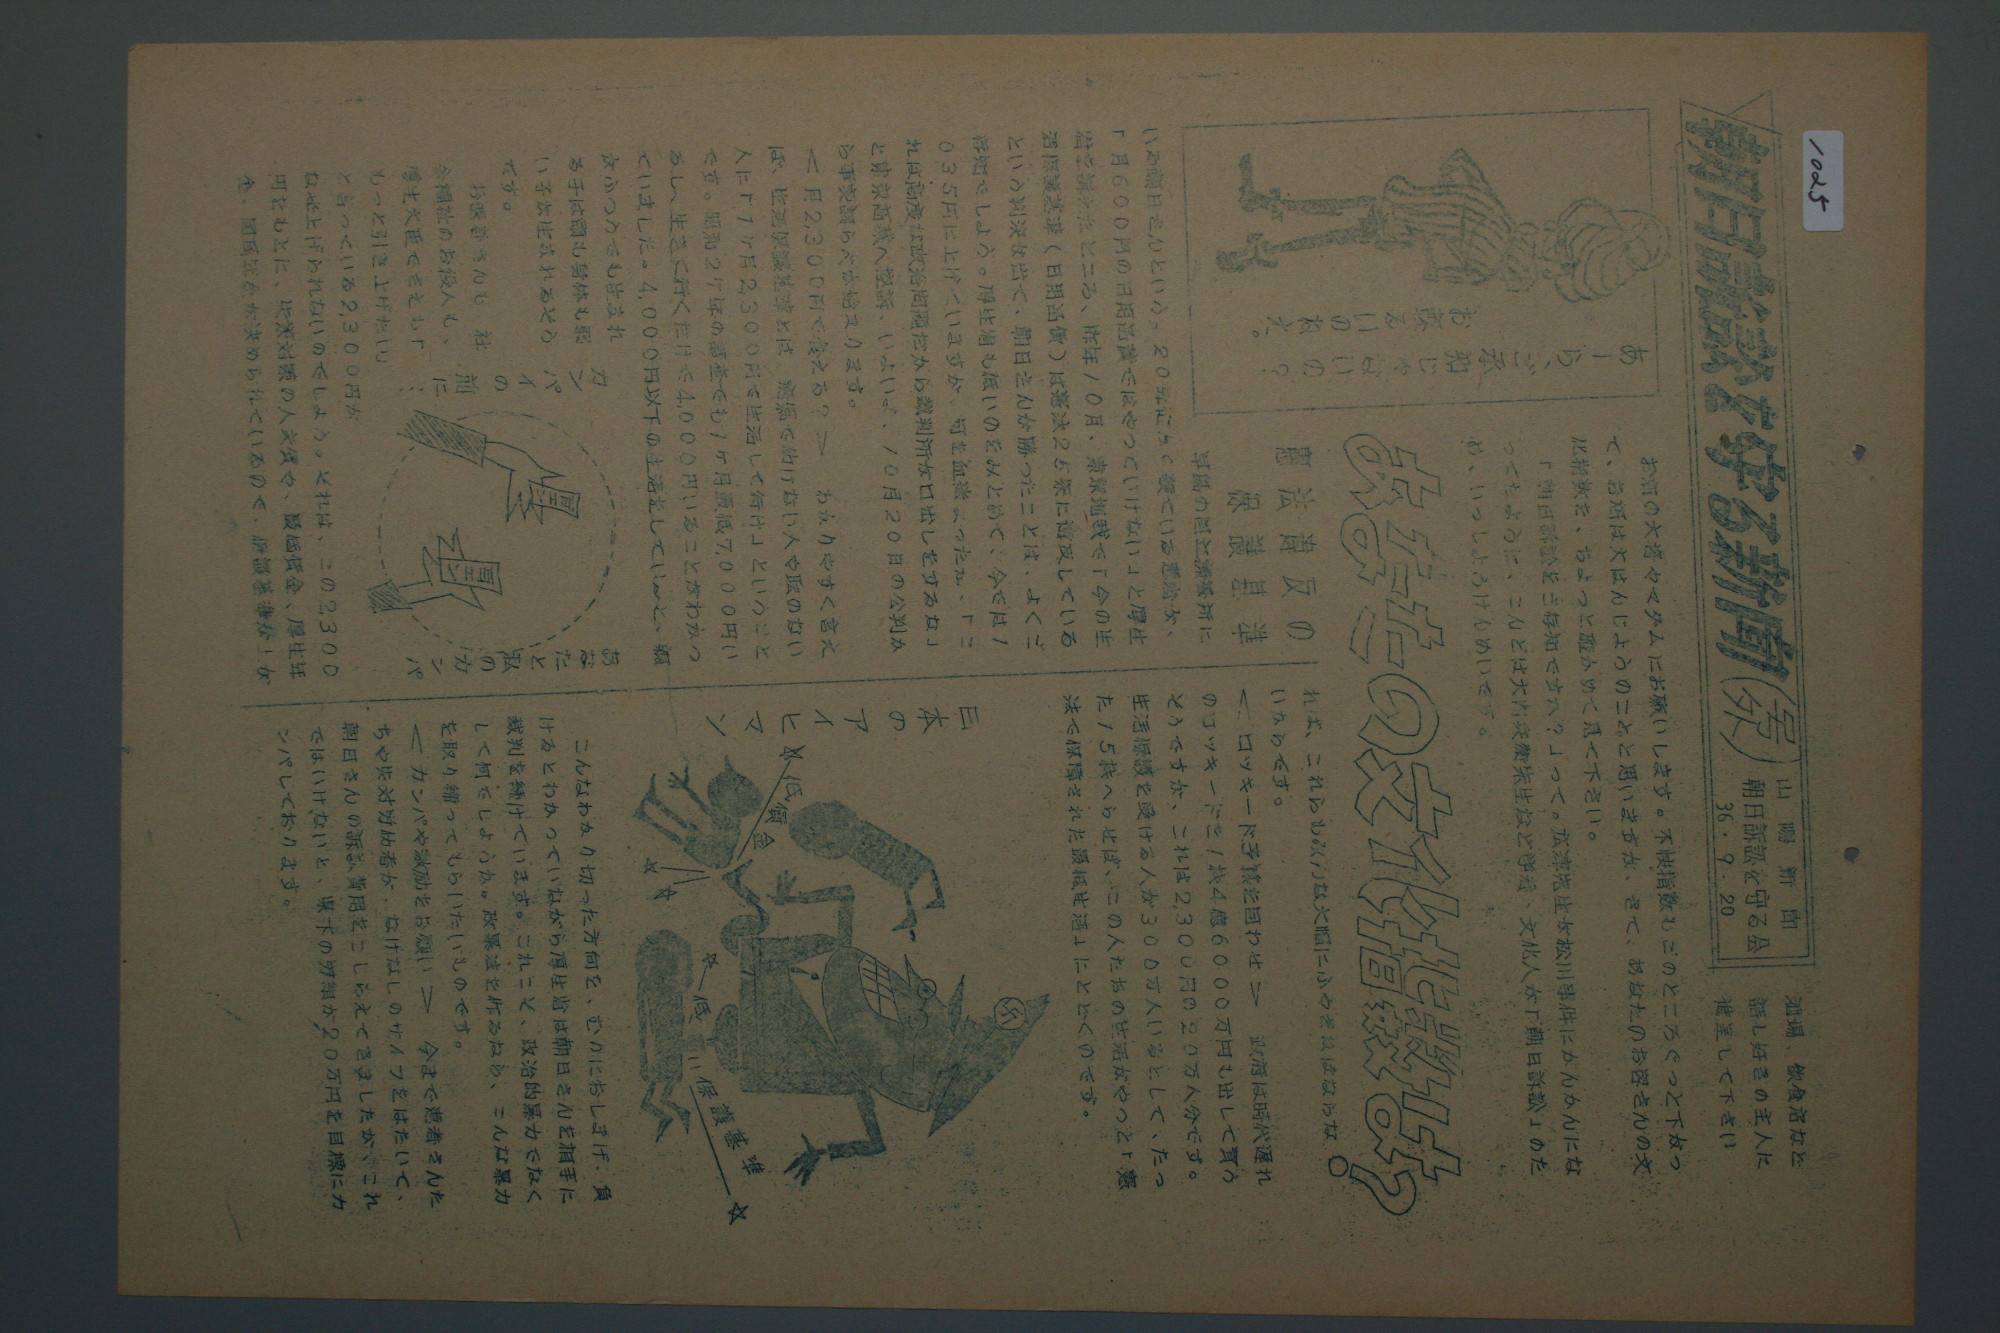 1025
朝日訴訟を守る新聞
山陽新聞
朝日訴訟を守る会
36・9・20
酒場、飲食店など
話し好きの主人に
進呈して下さい
お酒の大将やマダムにお願いします。不快指数もこのところぐっと下がっ
て、お店は大はんじょうのことと思いますが、さて、あなたのお客さんの文
化指数を、ちょっと確かめて見て下さい。
「朝日訴訟をご存知ですか?」って。広津先生が松川事件にがんかんにな
ってたように、こんどは大内兵衛先生など学者、文化人が「朝日訴訟」のた
め、いっしょうけんめいです。
あなたの文化指数は?
あーら、ご承知じゃないの?
お飲みいの
ねえ。
憲法違反の
保護基準
早島の国立療養所に
いる朝日さんという、20年近く寝ている患者が、
「月600円の日用品費ではやっていけない」と厚生
省を訴えたところ、昨年10月、東京地裁で「今の生
活保護基準(日用品費)は憲法25条に違反している
という判決が出て、朝日さんが勝ったことは、よくご
存知でしょう。厚生省も低いのをみとめて、今では1
035円に上げていますが、
れは高度な政治問題だから裁判所が口出しをするな」
と東京高裁へ控訴、いよいよ、10月20日の公判か
ら事実調べが始まります。
<月2,300円で食える?> わかりやすく言え
ば、生活保護基準とは、病気で働けない人や職のない
人に「1ケ月2,300円で生活して行け」ということ
です。昭和27年の調査でも1ケ月最低7,000円い
るし、生きて行くだけで4,000円いることがわかっ
ていました。4,000円以下の生活をしていると、親
がふつうでも生まれ
る子は頭も身体も弱
い子が生まれるそう
です。
お医者さんも、社
会福祉のお役人も、
厚生大臣でさえも「
もっと引き上げたい」
と言っている2,300円が
な　　上げられないのでしょう。それは、この2,300
円をもとに、失業対策の人夫賃や、最低賃金、厚生年
金、国民年金が決められているので、保護基準が上が
カンパイの前に…
あなたと私の「カンパ
れば、これらもみんな大幅にふやさねばならな
いからです。
<ロッキード予算を回わせ> 政府は時代遅れ
のロッキードを1機4億6000万円も出して買う
そうですが、これは2,300円の20万人分です。
生活保護を受ける人が300万人いるとして、たっ
た15機へらせば、この人たちの生活がやっと「憲
法で保障された最低生活」にとどくのです。
日本のアイヒマン
☆低賃金
☆低い保護基準☆
こんなわかり切った方向を、むりにおしまげ、負
けるとわかっていながら厚生省は朝日さんを相手に
裁判を続けています。これこそ、政治的暴力でなく
して何でしょうか。政暴法を作るなら、こんな暴力
を取り締ってもらいたいものです。
<カンパや激励をお願い> 今まで患者さんた
ちや失対労働者が、なけなしのサイフをはたいて、
朝日さんの訴訟費用をこしらえてきましたが、これ
ではいけないと、県下の労組が20万円を目標にカ
ンパしております。